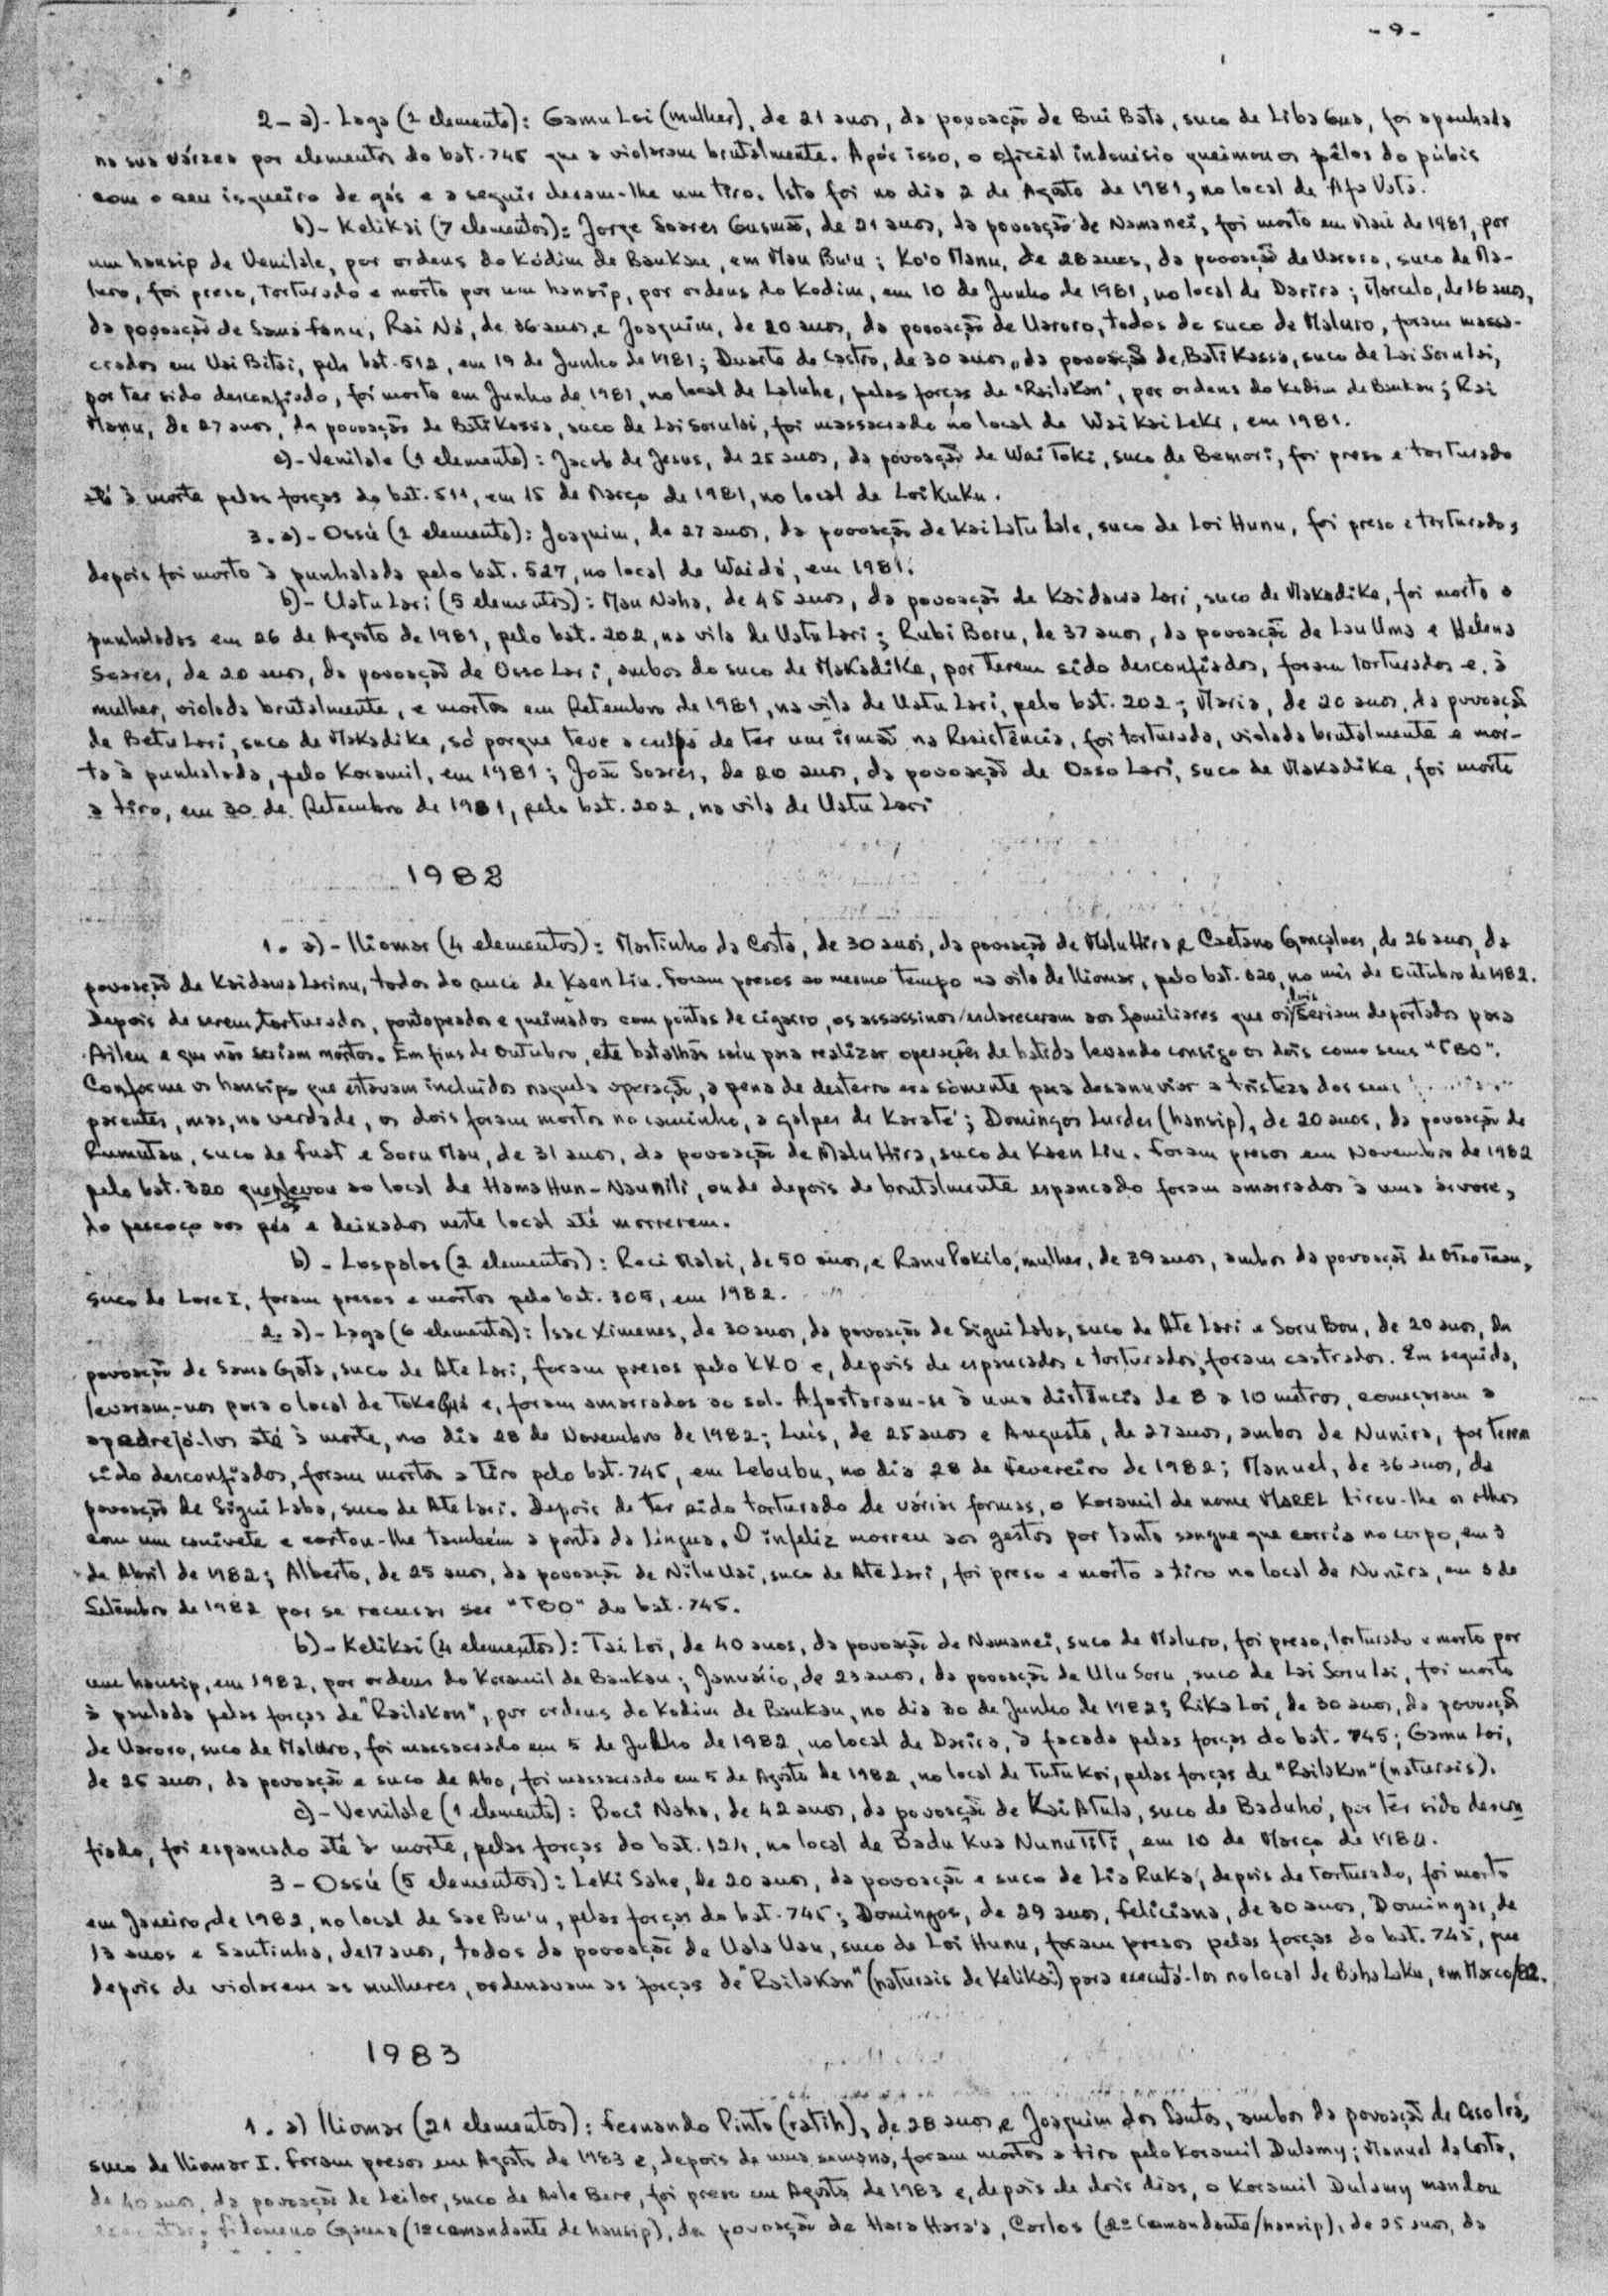 - 9 -
2- a)- Laga (1 elemento): Gamu Loi (mulher), de 21 anos, da povoação de Bui Bata, suco de Liba Gua, foi apanhada
na sua várzea por elementos do bat. 745 que a violaram brutalmente. Após isso, o oficial indonésio queimou os pêlos do púbis
com o seu isqueiro de gás e a seguir deram-lhe um tiro. Isto foi no dia 2 de Agosto de 1981, no local de Afa Vata.
b)- Kelikai (7 elementos): Jorge Soares Gusmão, de 21 anos, da povoação de Namanei, foi morto em Maio de 1981, por
um hansip de Venilale, por ordens do Kódim de Baukau, em Mau Bu'u; Ko'o Manu, de 28 anos, da povoação de Uaroro, suco de Ma-
luro, foi preso, torturado e morto por um hansip, por ordens do Kodim, em 10 de Junho de 1981, no local de Darira; Marcelo, de 16 anos,
da povoação de Sama Fanu, Rai Ná, de 36 anos e Joaquim, de 20 anos, da povoação de Uaroro, todos do suco de Maluro, foram massa-
crados em Uai Bitai, pelo bat. 512, em 19 de Junho de 1981; Duarte de Castro, de 30 anos, da povoação de Bati Kassa, suco de Lai Soru lai,
por ter sido desconfiado, foi morto em Junho de 1981, no local de Laluhe, pelas forças de "Railakan", por ordens do Kodim de Baukau; Rai
Manu, de 27 anos, da povoação de Bati Kassa, suco de Lai Soru lai, foi massacrado no local de Wai Kai Leki, em 1981.
c)- Venilale (1 elemento): Jacob de Jesus, de 25 anos, da povoação de Wai Toki, suco de Bemori, foi preso e torturado
até à morte pelas forças do bat. 511, em 15 de Março de 1981, no local de Loi Kuku.
3. a)- Ossú (1 elemento): Joaquim, de 27 anos, da povoação de Kai Latu Lale, suco de Loi Hunu, foi preso e torturado,
depois foi morto à punhalada pelo bat. 527, no local de Waidá, em 1981.
b)- Uatu Lari (5 elementos): Mau Naha, de 45 anos, da povoação de Kaidawa Lari, suco de Makadike, foi morto a
punhaladas em 26 de Agosto de 1981, pelo bat. 202, na vila de Uatu Lari; Rubi Boru, de 37 anos, da povoação de Lau Uma e Helena
Soares, de 20 anos, da povoação de Osso Lari, ambos do suco de Makadike, por terem sido desconfiados, foram torturados e, à
mulher, violada brutalmente, e mortos em Setembro de 1981, na vila de Uatu Lari, pelo bat. 202; Maria, de 20 anos, da povoação
de Betu Lari, suco de Makadike, só porque teve a culpa de ter um irmão na Resistência, foi torturada, violada brutalmente e mor-
ta à punhalada, pelo Koramil, em 1981; João Soares, de 20 anos, da povoação de Osso Lari, suco de Makadike, foi morto
a tiro, em 30 de Setembro de 1981, pelo bat. 202, na vila de Uatu Lari
1982
1. a)- Iliomar (4 elementos): Martinho da Costa, de 30 anos, da povoação de Malu Hira e Caetano Gonçalves, de 26 anos, da
povoação de Kaidawa Larinu, todos do suco de Kaen Liu. Foram presos ao mesmo tempo na vila de Iliomar, pelo bat. 320, no mês de Outubro de 1982.
Depois de serem torturados, pontapeados e queimados com pontas de cigarro, os assassinos esclareceram aos familiares que os dois seriam deportados para
Aileu e que não seriam mortos. Em fins de Outubro, este batalhão saiu para realizar operações de batida levando consigo os dois como seus "TBO".
Conforme os hansips que estavam incluídos naquela operação, a pena de desterro era sòmente para desanuviar a tristeza dos seus
parentes, mas, na verdade, os dois foram mortos no caminho, a golpes de Karaté; Domingos Lurdes (hansip), de 20 anos, da povoação de
Rumutau, suco de Fuat e Soru Mau, de 31 anos, da povoação de Malu Hira, suco de Kaen Liu. Foram presos em Novembro de 1982
pelo bat. 320 que levou ao local de Hama Hun-Naunili, onde depois de brutalmente espancado foram amarrados à uma árvore,
do pescoço aos pés e deixados neste local até morrerem.
b) - Lospalos (2 elementos): Raci Malai, de 50 anos, e Ranu Pokilo, mulher, de 39 anos, ambos da povoação de
suco de Lore I, foram presos e mortos pelo bat. 305, em 1982.
2. a)- Laga (6 elementos): Isac Ximenes, de 30 anos, da povoação de Sigui Laba, suco de Ate Lari e Soru Bou, de 20 anos, da
povoação de Sama Gata, suco de Ate Lari, foram presos pelo KKO e, depois de espancados e torturados, foram castrados. Em seguida,
levaram-nos para o local de Toke Guá e, foram amarrados ao sol. Afastaram-se à uma distância de 8 a 10 metros, começaram a
apedrejá-los até à morte, no dia 28 de Novembro de 1982; Luís, de 25 anos e Augusto, de 27 anos, ambos de Nunira, por terem
sido desconfiados, foram mortos a tiro pelo bat. 745, em Lebubu, no dia 28 de Fevereiro de 1982; Manuel, de 36 anos, da
povoação de Sigui Laba, suco de Ate Lari. Depois de ter sido torturado de várias formas, o Koramil de nome MAREL tirou-lhe os olhos
com um canivete e cortou-lhe também a ponta da língua. O infeliz morreu aos gestos por tanto sangue que corria no corpo, em 3
de Abril de 1982; Alberto, de 25 anos, da povoação de Nilu Uai, suco de Ate Lari, foi preso e morto a tiro no local de Nunira, em 3 de
Setembro de 1982 por se recusar ser "TBO" do bat. 745.
b)- Kelikai (4 elementos): Tai Loi, de 40 anos, da povoação de Namanei, suco de Maluro, foi preso, torturado e morto por
um hansip, em 1982, por ordens do Koramil de Baukau; Januário, de 23 anos, da povoação de Ulu Soru, suco de Lai Soru lai, foi morto
à paulada pelas forças de "Railakan", por ordens do Kodim de Baukau, no dia 30 de Junho de 1982; Rika Loi, de 30 anos, da povoação
de Uaroro, suco de Maluro, foi massacrado em 5 de Julho de 1982, no local de Darira, à facada pelas forças do bat. 745; Gamu Loi,
de 25 anos, da povoação e suco de Abo, foi massacrado em 5 de Agosto de 1982, no local de Tutu Koi, pelas forças de "Railakan" (naturais).
c)- Venilale (1 elemento): Boci Naha, de 42 anos, da povoação de Kai Atula, suco de Baduhó, por ter sido descon
fiado, foi espancado até à morte, pelas forças do bat. 124, no local de Badu Kua Nunu Titi, em 10 de Março de
3 - Ossú (5 elementos): Leki Sahe, de 20 anos, da povoação e suco de Lia Ruka, depois de torturado, foi morto
em Janeiro de 1982, no local de Sae Bu'u, pelas forças do bat. 745; Domingos, de 29 anos, Feliciana, de 30 anos, Domingas, de
13 anos e Santinha, de 17 anos, todos da povoação de Uala Uau, suco de Loi Hunu, foram presos pelas forças do bat. 745, que
depois de violarem as mulheres, ordenavam as forças de "Railakan" (naturais de Kelikai) para executá-los no local de Baha Laku, em Março/82.
1983
1. a) Iliomar (21 elementos): Fernando Pinto (ratih), de 28 anos e Joaquim dos Santos, ambos da povoação de
suco de Iliomar I. Foram presos em Agosto de 1983 e, depois de uma semana, foram mortos a tiro pelo Koramil Dulamy; Manuel da Costa,
de 40 anos, da povoação de Leilor, suco de Aile Bere, foi preso em Agosto de 1983 e, depois de dois dias, o Koramil Dulamy mandou
executar; Filomeno Gama (1º comandante de hansip), da povoação de Hara Hara'a, Carlos (2º Comandante/hansip), de 25 anos, da